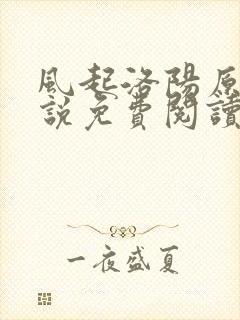 風起洛陽原
說免費閱讀
一夜盛夏